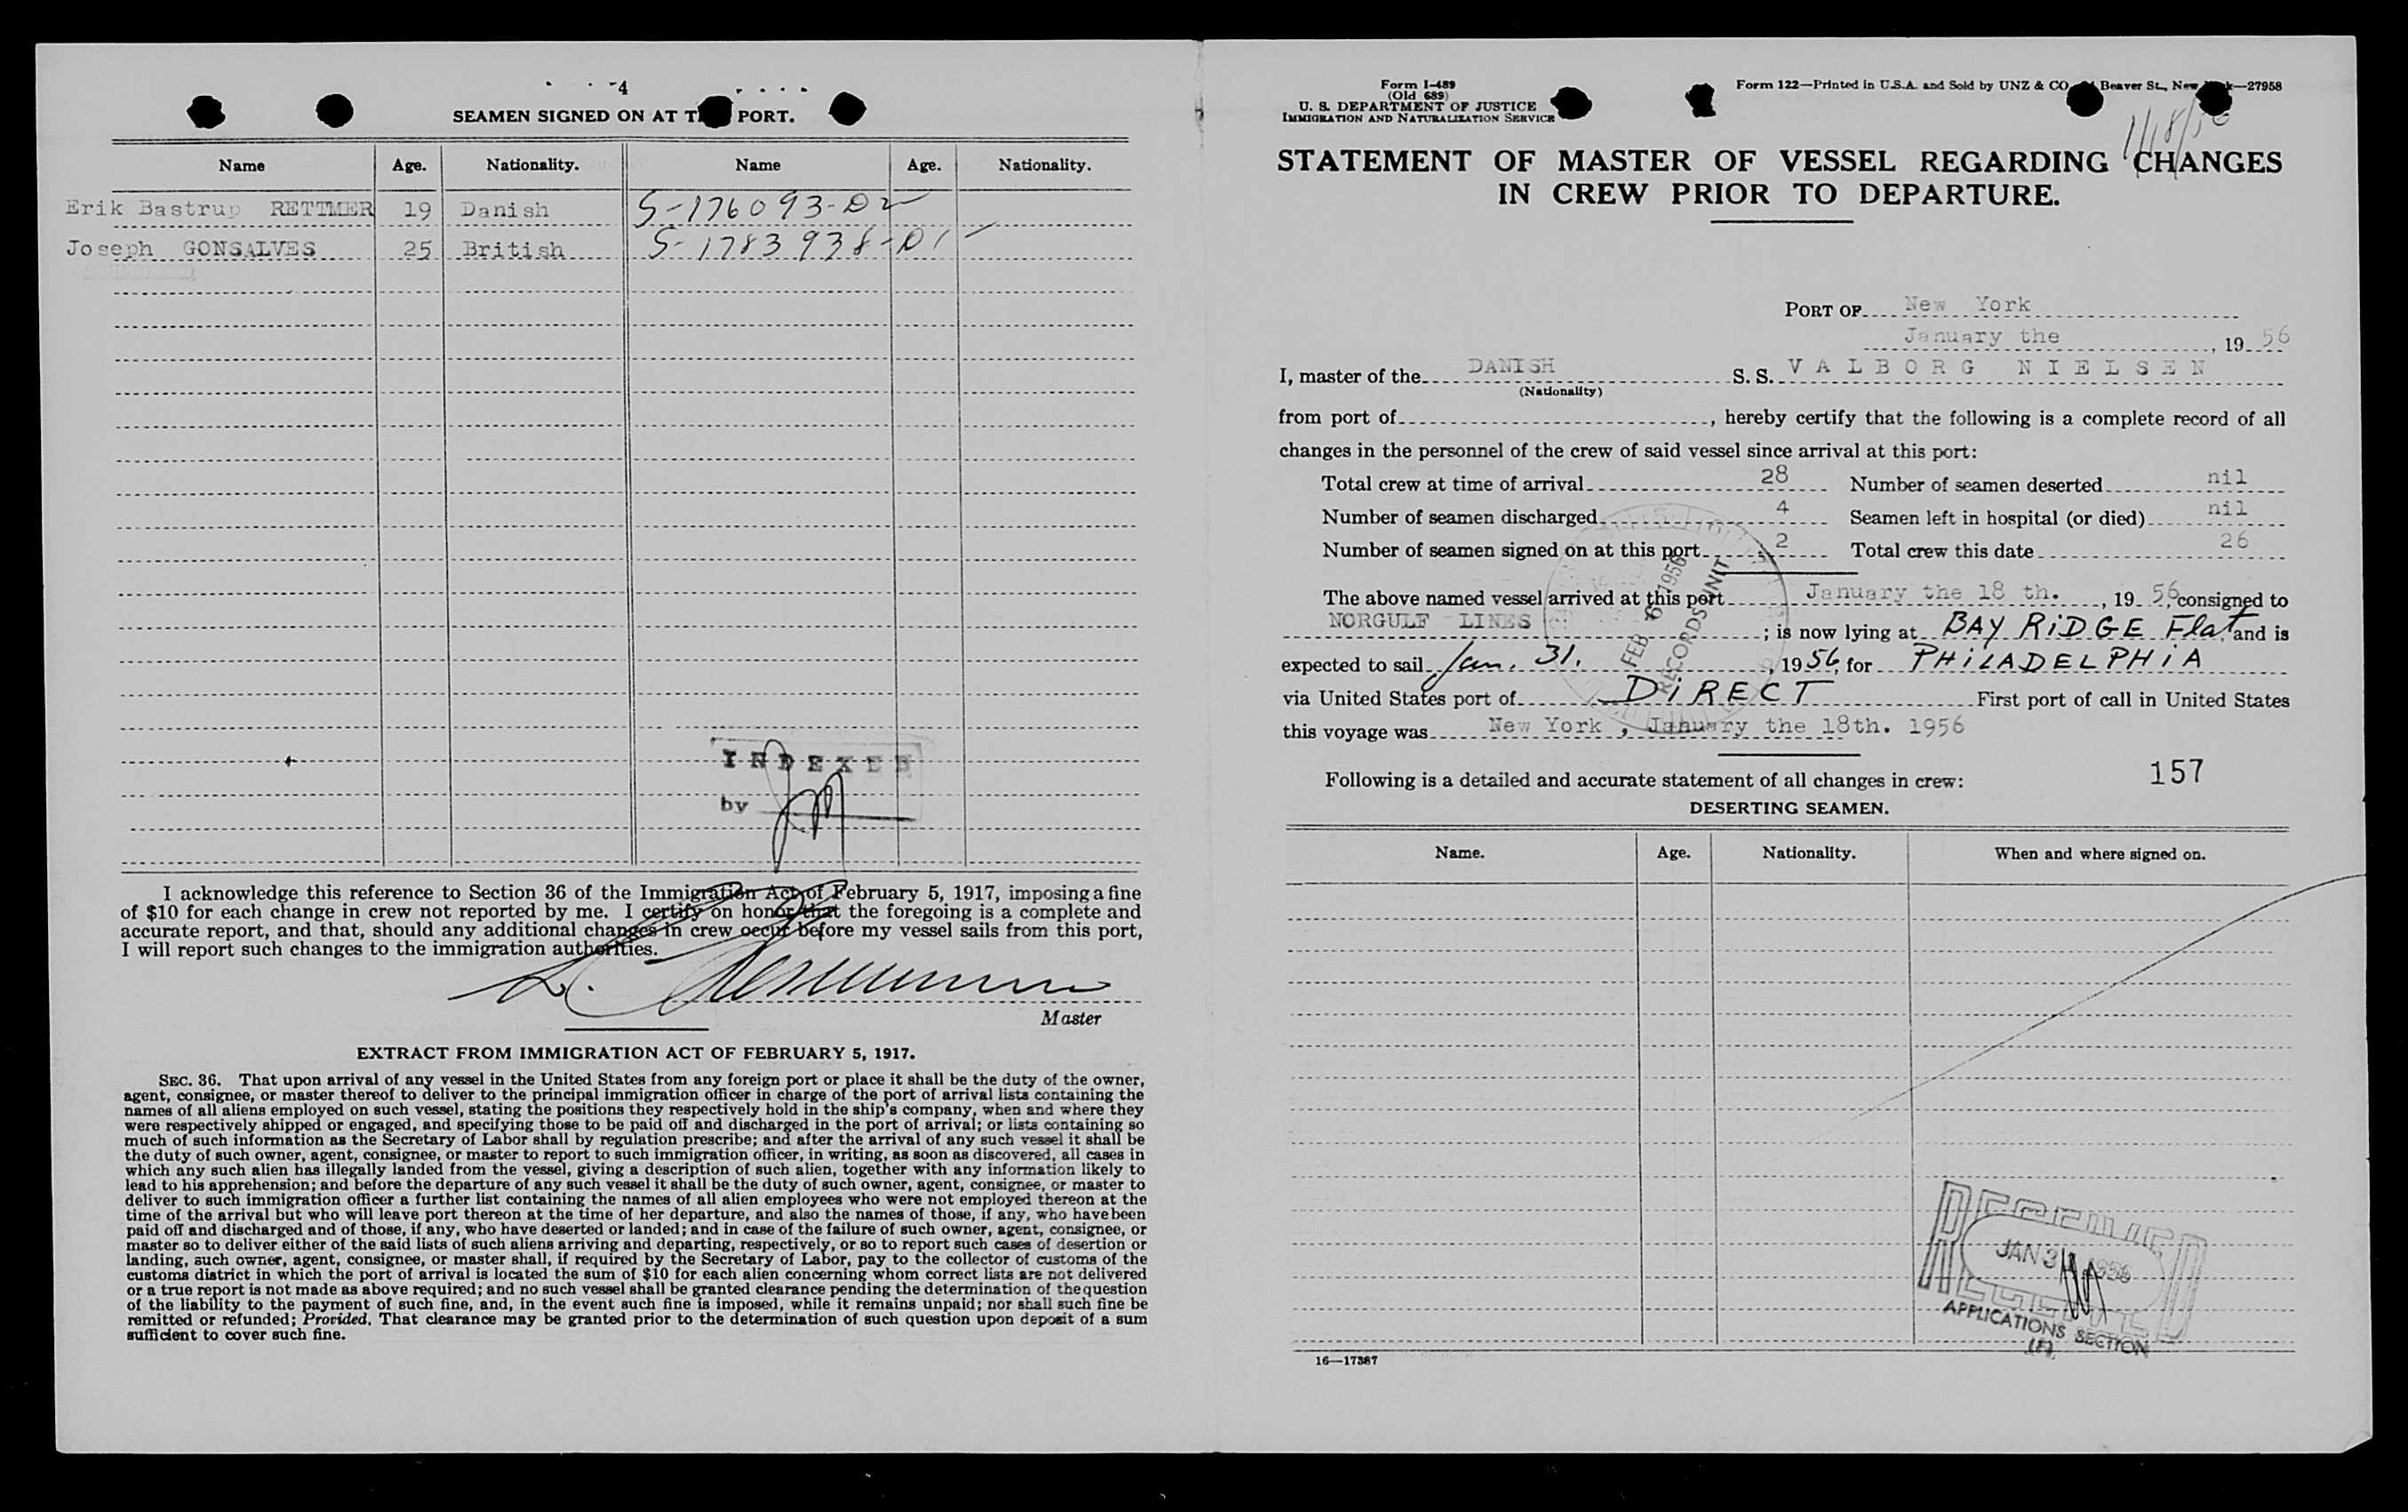 -4
SEAMEN SIGNED ON AT T PORT.
Name Age. Nationality. Name Age. Nationality.
Erik Bastrup RETTMER 19 Danish S-176093-D2
Joseph GONSALVES 25 British S-1783938-D1
INDEXED
by
I acknowledge this reference to Section 36 of the Immigration Act of February 5, 1917, imposing a fine
of $10 for each change in crew not reported by me. I certify on honor that the foregoing is a complete and
accurate report, and that, should any additional changes in crew occur before my vessel sails from this port,
I will report such changes to the immigration authorities.
Master
EXTRACT FROM IMMIGRATION ACT OF FEBRUARY 5, 1917.
SEC. 36. That upon arrival of any vessel in the United States from any foreign port or place it shall be the duty of the owner,
agent, consignee, or master thereof to deliver to the principal immigration officer in charge of the port of arrival lists containing the
names of all aliens employed on such vessel, stating the positions they respectively hold in the ship's company, when and where they
were respectively shipped or engaged, and specifying those to be paid off and discharged in the port of arrival; or lists containing so
much of such information as the Secretary of Labor shall by regulation prescribe; and after the arrival of any such vessel it shall be
the duty of such owner, agent, consignee, or master to report to such immigration officer, in writing, as soon as discovered, all cases in
which any such alien has illegally landed from the vessel, giving a description of such alien, together with any information likely to
lead to his apprehension; and before the departure of any such vessel it shall be the duty of such owner, agent, consignee, or master to
deliver to such immigration officer a further list containing the names of all alien employees who were not employed thereon at the
time of the arrival but who will leave port thereon at the time of her departure, and also the names of those, if any, who have been
paid off and discharged and of those, if any, who have deserted or landed; and in case of the failure of such owner, agent, consignee, or
master so to deliver either of the said lists of such aliens arriving and departing, respectively, or so to report such cases of desertion or
landing, such owner, agent, consignee, or master shall, if required by the Secretary of Labor, pay to the collector of customs of the
customs district in which the port of arrival is located the sum of $10 for each alien concerning whom correct lists are not delivered
or a true report is not made as above required; and no such vessel shall be granted clearance pending the determination of the question
of the liability to the payment of such fine, and, in the event such fine is imposed, while it remains unpaid; nor shall such fine be
remitted or refunded; Provided, That clearance may be granted prior to the determination of such question upon deposit of a sum
sufficient to cover such fine.
Form I-489
(Old 689)
U. S. DEPARTMENT OF JUSTICE
IMMIGRATION AND NATURALIZATION SERVICE
Form 122—Printed in U.S.A. and Sold by UNZ & CO Beaver St., New k—27958
1/18/56
STATEMENT OF MASTER OF VESSEL REGARDING CHANGES
IN CREW PRIOR TO DEPARTURE.
PORT OF New York
January the , 19 56
I, master of the DANISH S. S. VALBORG NIELSEN
(Nationality)
from port of , hereby certify that the following is a complete record of all
changes in the personnel of the crew of said vessel since arrival at this port:
Total crew at time of arrival 28 Number of seamen deserted nil
Number of seamen discharged 4 Seamen left in hospital (or died) nil
Number of seamen signed on at this port 2 Total crew this date 26
The above named vessel arrived at this port January the 18 th. , 19 56, consigned to
NORGULF LINES ; is now lying at BAY RIDGE Flat, and is
expected to sail Jan. 31. , 1956, for PHILADELPHIA
via United States port of DIRECT First port of call in United States
this voyage was New York , January the 18th. 1956
FEB 6 1956
RECORDS UNIT
Following is a detailed and accurate statement of all changes in crew: 157
DESERTING SEAMEN.
Name. Age. Nationality. When and where signed on.
RECEIVED
JAN 31 1956
APPLICATIONS SECTION
16—17387